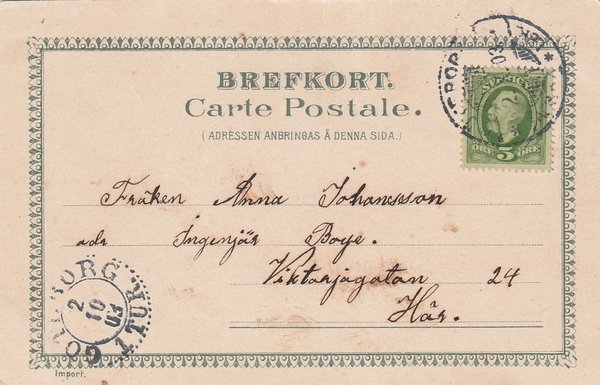 BREFKORT.
Carte Postale.
( ADRESSEN ANBRINGAS Å DENNA SIDA. )
5 ÖRE
Fröken Anna Johansson
adr Ingenjär Boye.
Viktoriagatan 24
Här.
GÖTEBORG
2
10
03
1 TUR
Import.